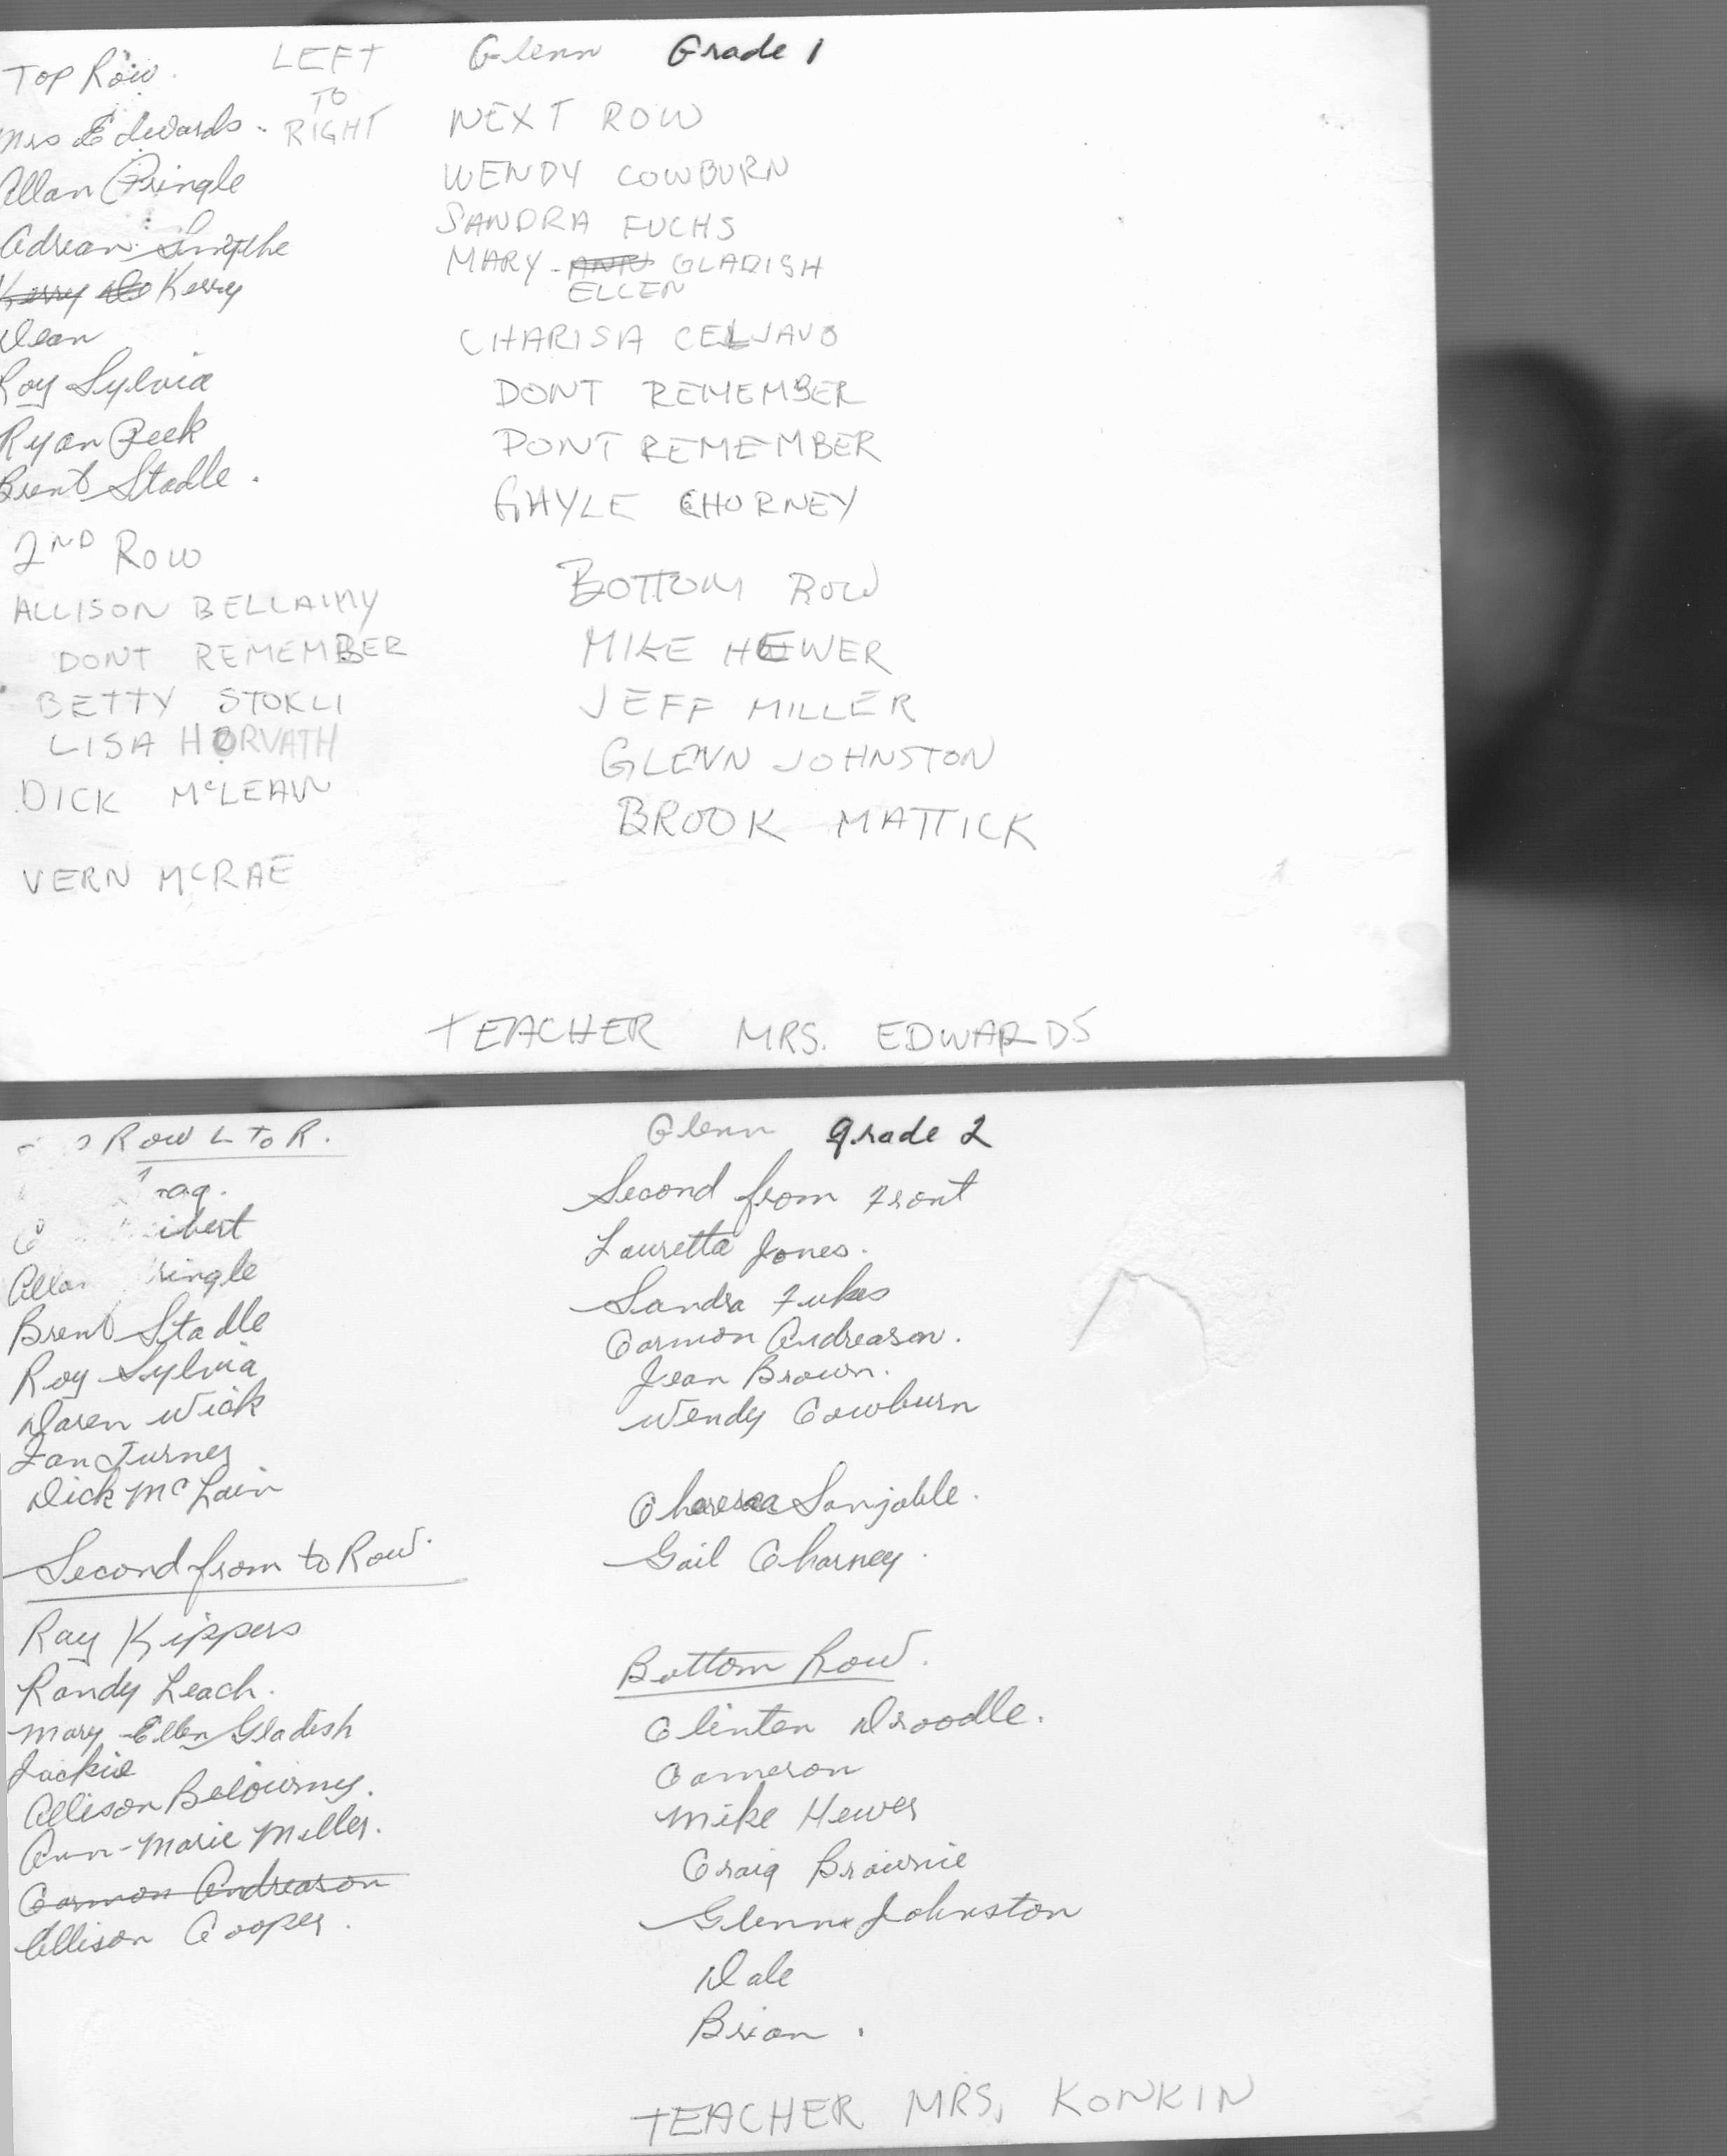 Top Row.
LEFT
TO
RIGHT
Glenn Grade 1
Mrs Edwards.
Allan Pringle
Adrean Smythe
Kerry Kerry
Dean
Roy Sylvia
Ryan Peek
Brent Stadle.
2ND ROW
ALLISON BELLAMY
DONT REMEMBER
BETTY STOKLI
LISA HORVATH
DICK McLEAN
VERN McRAE
NEXT ROW
WENDY COWBURN
SANDRA FUCHS
MARY-ANN GLADISH
ELLEN
CHARISA CELJAVO
DONT REMEMBER
DONT REMEMBER
GAYLE CHORNEY
BOTTOM ROW
MIKE HEWER
JEFF MILLER
GLENN JOHNSTON
BROOK MATTICK
TEACHER MRS. EDWARDS
Row L to R.
Allan
Brent Stadle
Roy Sylvia
Daren Wick
Ian Turner
Dick McLain
Second from to Row.
Ray Kippers
Randy Leach.
Mary-Ellen Gladish
Jackie
Allison
Ann-Marie Miller.
Carmon Andreason
Allison Cooper.
Glenn grade 2
Second from Front
Lauretta Jones.
Sandra Fukes
Carmon Andreason.
Jean Brown.
Wendy Cowburn
Sanjoble.
Gail Charney.
Bottom Row.
Clinten Droodle.
Cameron
Mike Hewer
Craig Brownie
Glenn Johnston
Dale
Brian.
TEACHER MRS. KONKIN